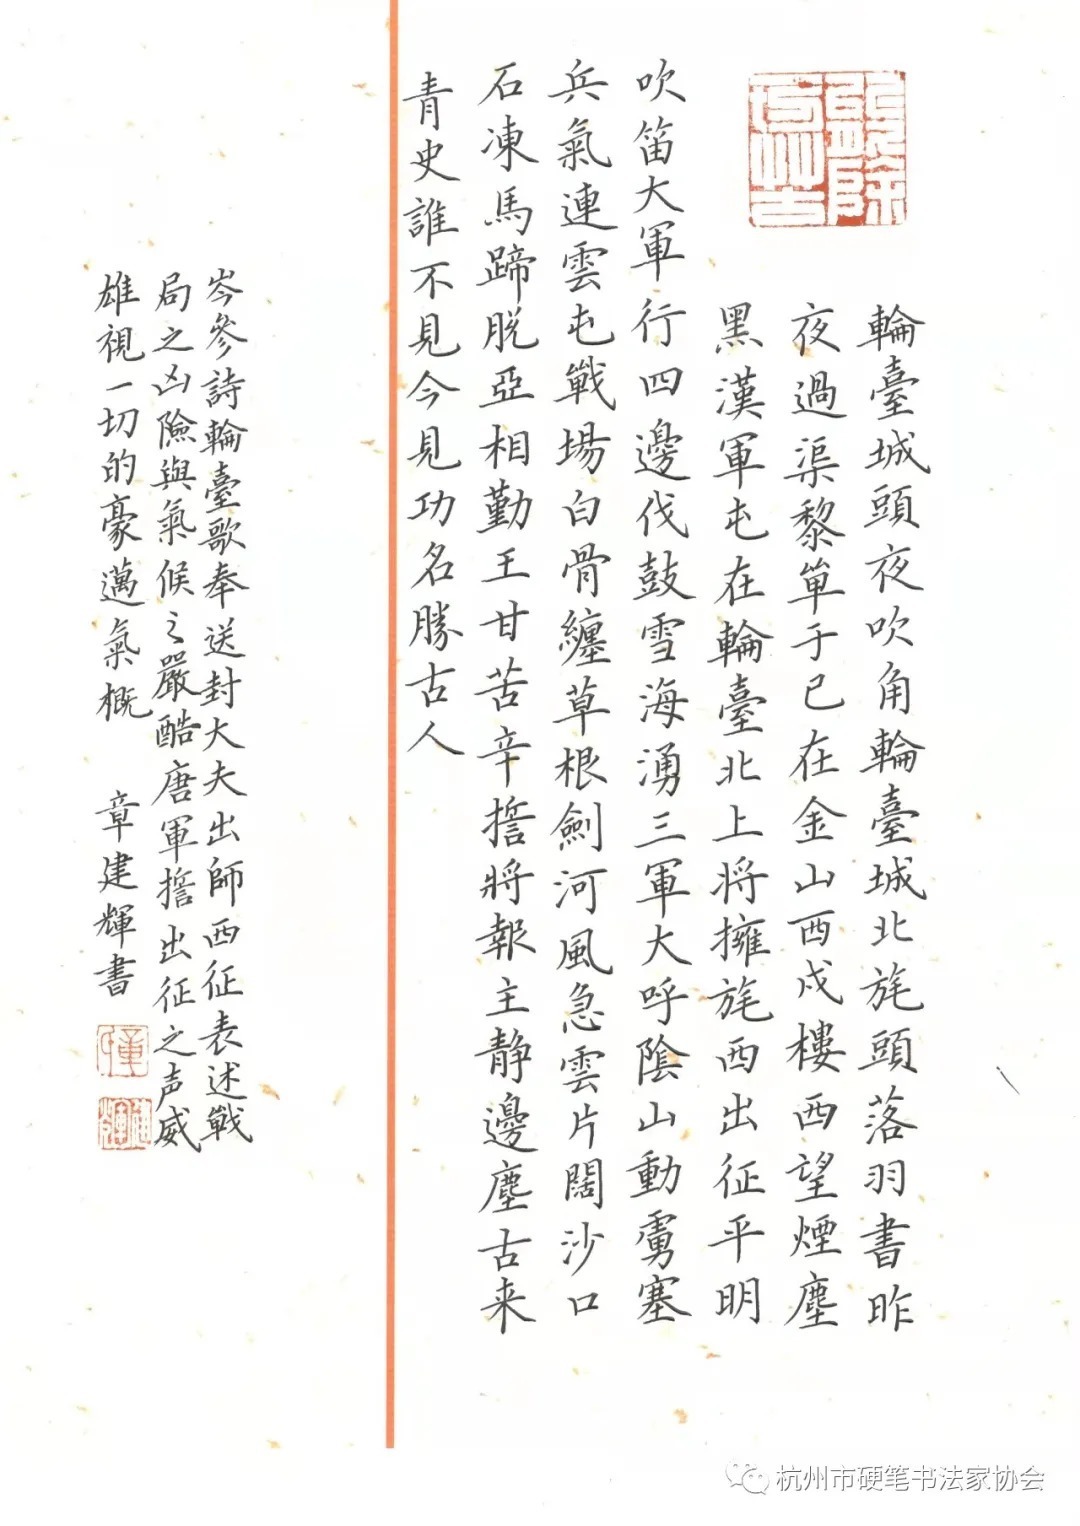 輪臺城頭夜吹角輪臺城北旄頭落羽書昨
夜過渠黎單于已在金山西戍樓西望煙塵
黑漢軍屯在輪臺北上將擁旄西出征平明
吹笛大軍行四邊伐鼓雪海湧三軍大呼陰山動虜塞
兵氣連雲屯戰場白骨纏草根劍河風急雲片闊沙口
石凍馬蹄脱亞相勤王甘苦辛誓將報主静邊塵古来
青史誰不見今見功名勝古人
岑參詩輪臺歌奉送封大夫出師西征表述戰
局之凶險與氣候之嚴酷唐軍誓出征之声威
雄視一切的豪邁氣概 章建輝書
杭州市硬笔书法家协会